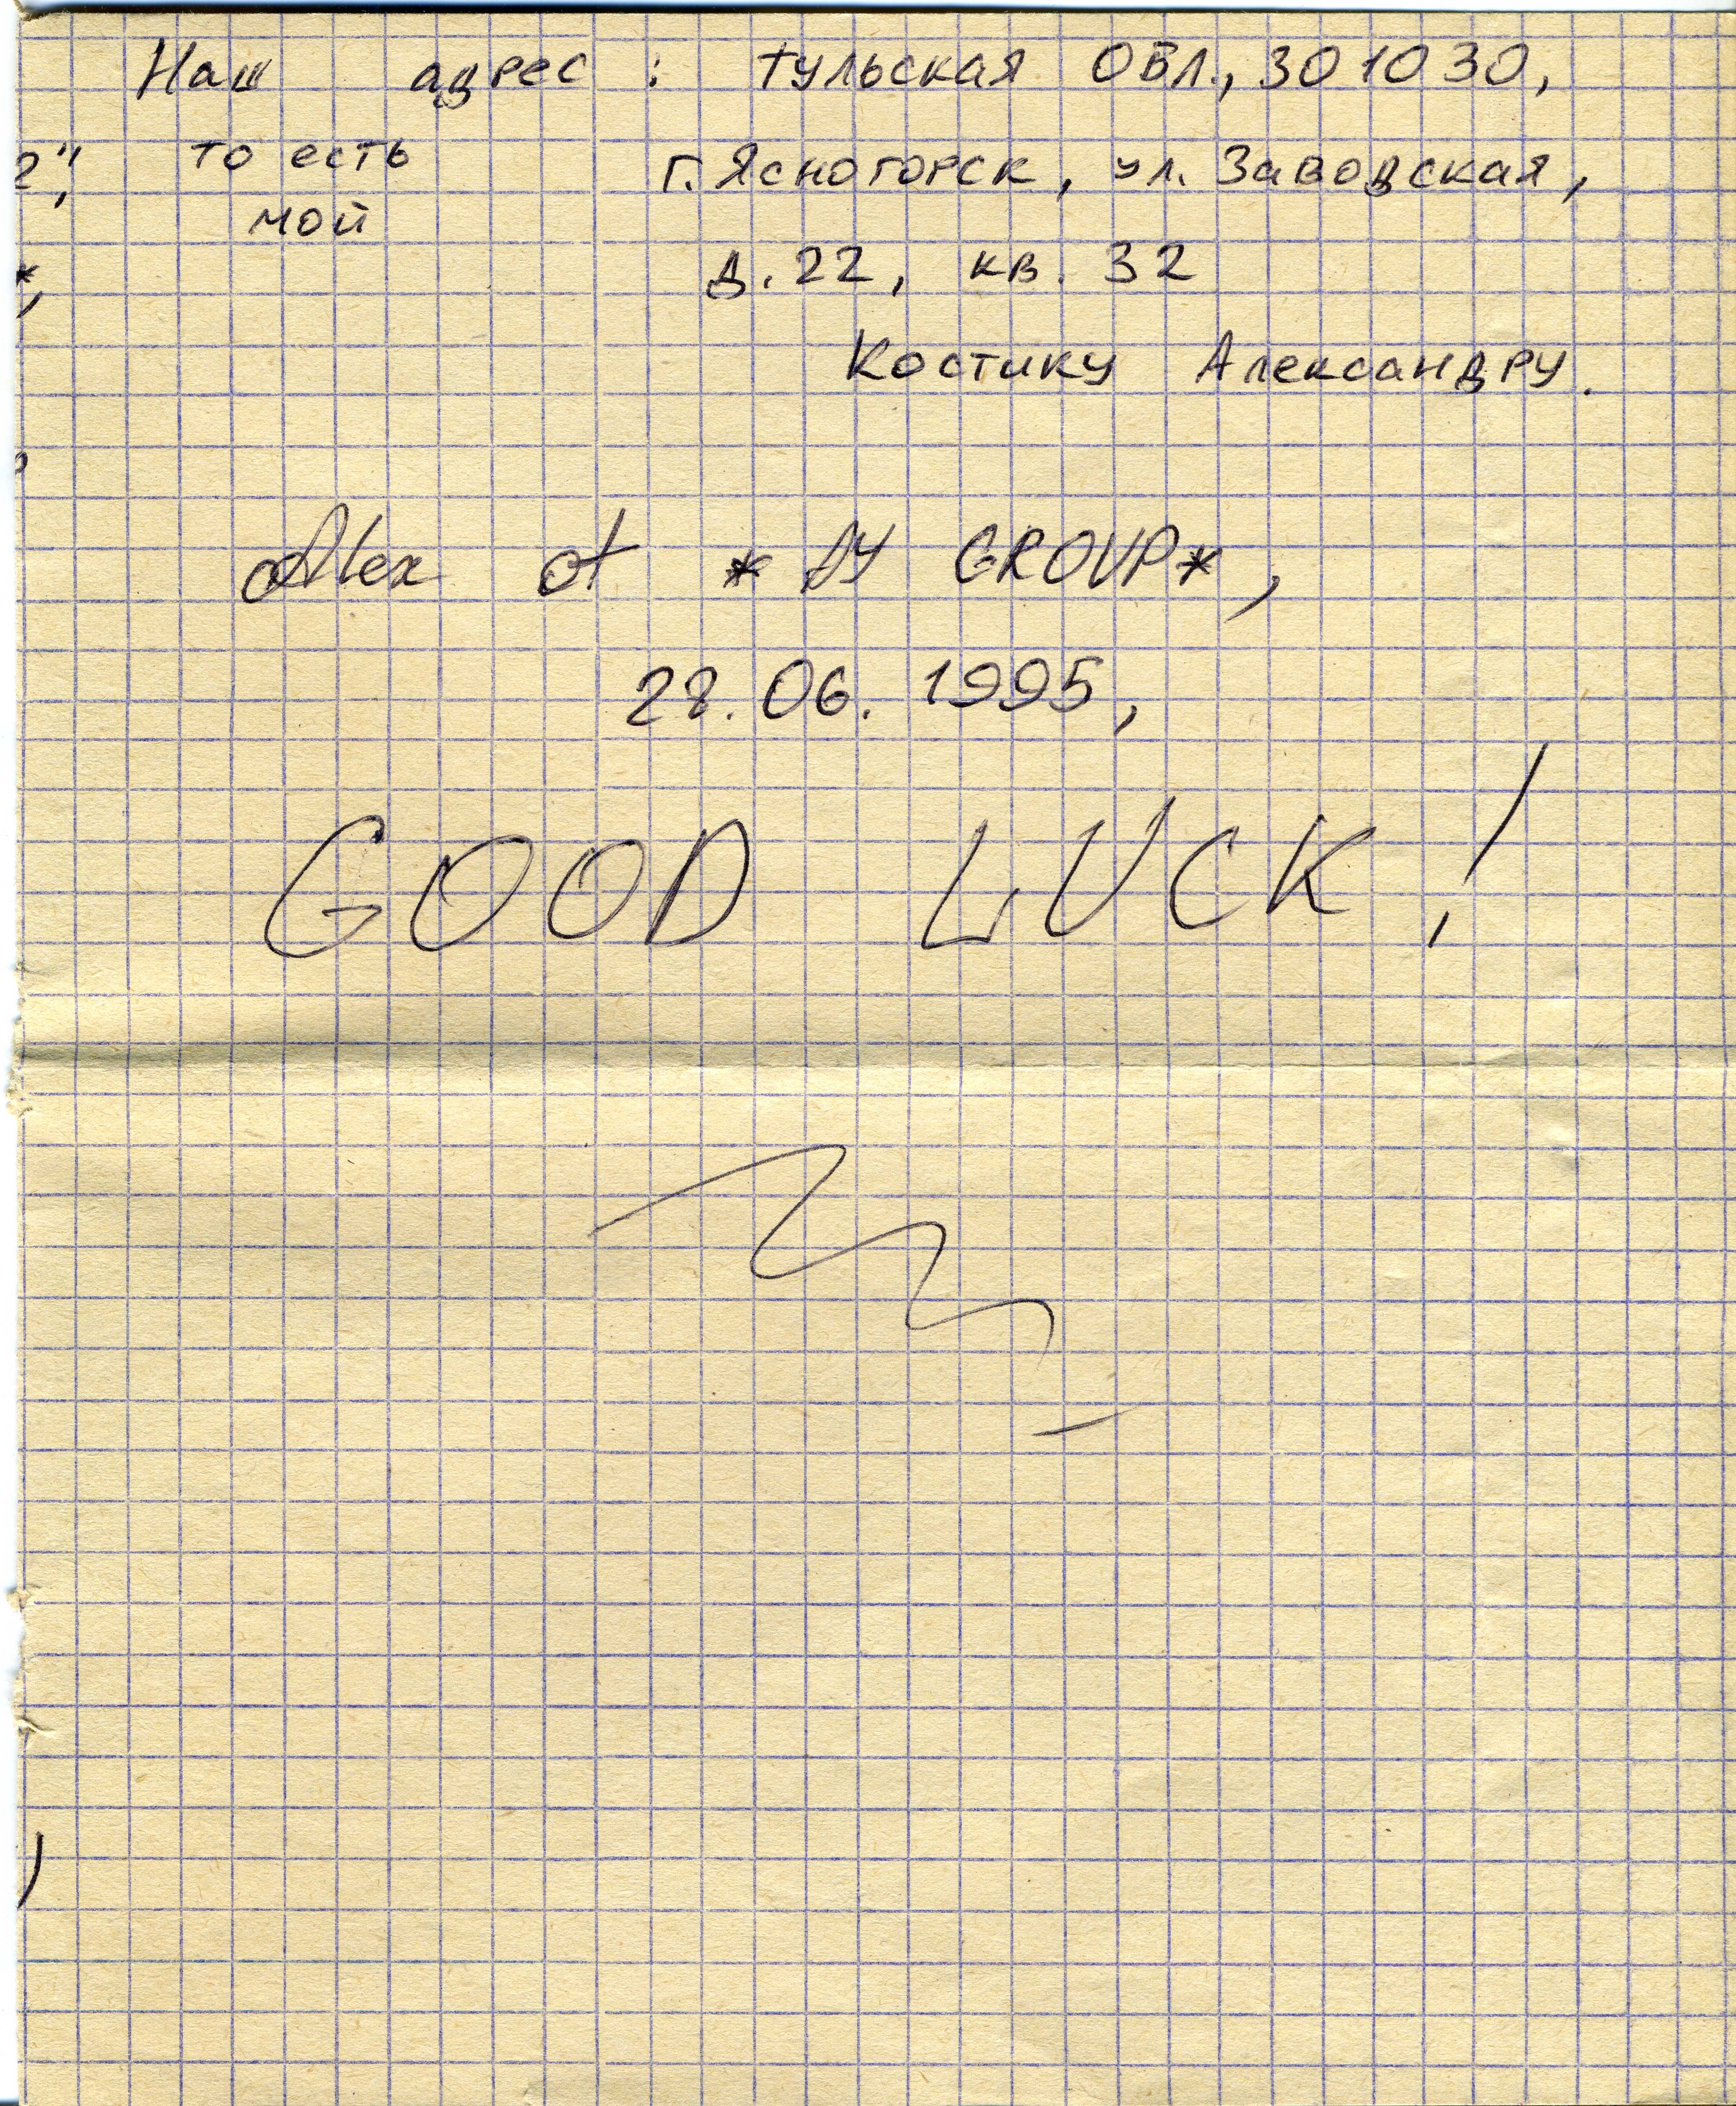 Наш адрес : Тульская обл., 301030,
2",
то есть
г. Ясногорск, ул. Заводская,
мой
д. 22, кв. 32
Костику Александру.
Alex of * AY GROUP*,
28.06.1995,
GOOD LUCK!